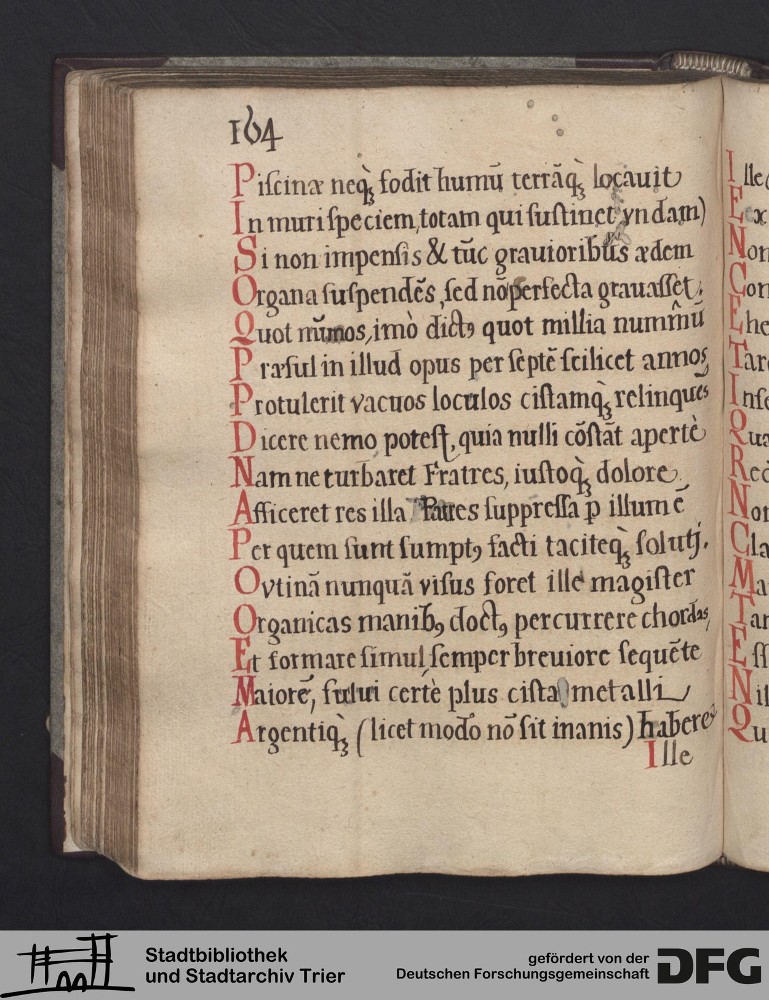 164
Piſcinæ neqꝫ fodit humū terrāqꝫ locauit
In muri ſpeciem, totam qui ſuſtinet vndam)
Si non impenſis & tūc grauioribus ædem
Organa ſuſpendēs, ſed nō perfecta grauaſſet;
Quot nūmos, imò dictꝰ quot millia numm̄ū
Præſul in illud opus per ſeptē ſcilicet annos,
Protulerit vacuos loculos ciſtamqꝫ relinques
Dicere nemo poteſt, quia nulli cōſtāt apertè
Nam ne turbaret Fratres, iuſtoqꝫ dolore
Afficeret res illa Patres ſuppreſſa p illum ē
Per quem ſunt ſumptꝰ facti taciteqꝫ ſolutj.
Ovtinā nunquā viſus foret ille magiſter
Organicas manibꝰ doctꝰ percurrere chordas,
Et formare ſimul ſemper breuiore ſequēte
Maiorē, fului certè plus ciſta metalli
Argentiqꝫ (licet modo nō ſit inanis) haberet
Ille
Ille
E
Non
Con
Ehe
Tar
Inſe
Qua
Rec
Non
Cla
Ma
Tan
Eſſ
Nil
Qu
Stadtbibliothek
und Stadtarchiv Trier
gefördert von der
Deutschen Forschungsgemeinschaft
DFG